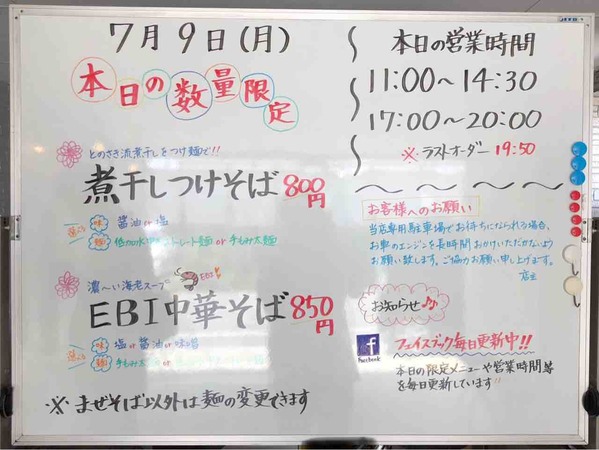 7月9日(月)
本日の数量限定
とのさき流煮干しをつけ麺で!!
煮干しつけそば 800円
選べる
味 醤油 or 塩
麺 低加水ストレート麺 or 手もみ太麺
濃〜い海老スープ
EBI
EBI中華そば 850円
選べる
味 塩 or 醤油 or 味噌
麺 手もみ太麺 or
※ まぜそば以外は麺の変更できます
本日の営業時間
11:00〜14:30
17:00〜20:00
※ラストオーダー 19:50
お客様へのお願い
当店専用駐車場でお待ちになられる場合、
お車のエンジンを長時間おかけいただかないよう
お願い致します。ご協力お願い申し上げます。
店主
お知らせ♪
f
Facebook
フェイスブック毎日更新中!!
本日の限定メニューや営業時間等
を毎日更新しています!!